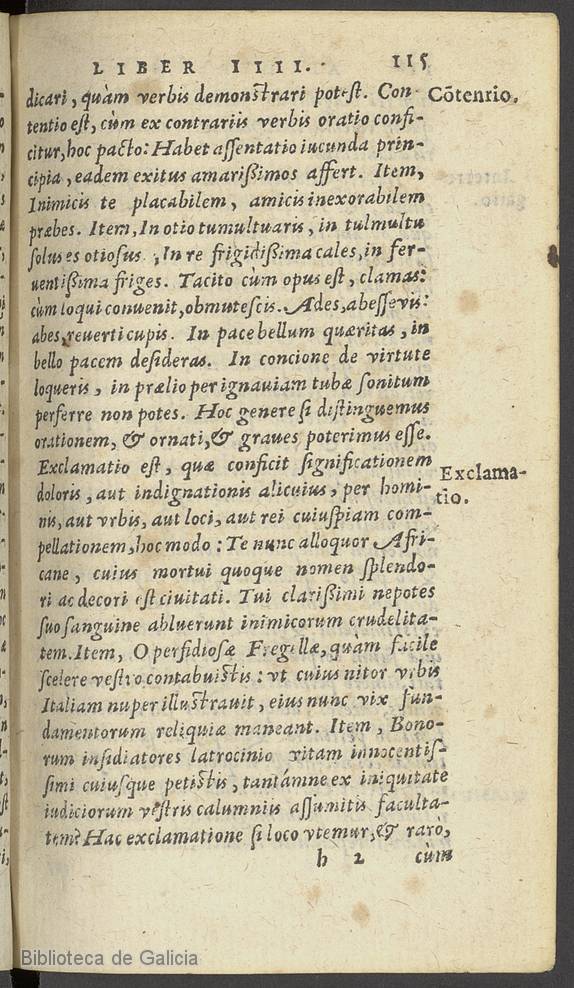 LIBER IIII. 115
dicari, quàm verbis demonſtrari poteſt. Con- Cōtentio.
tentio eſt, cùm ex contrariis verbis oratio confi-
citur, hoc pacto: Habet aſſentatio iucunda prin-
cipia, eadem exitus amariſsimos affert. Item,
Inimicis te placabilem, amicis inexorabilem
præbes. Item, In otio tumultuaris, in tulmultu
ſolus es otioſus, In re frigidiſsima cales, in fer-
uentiſsima friges. Tacito cùm opus eſt, clamas:
cùm loqui conuenit, obmuteſcis. Ades, abeſſe vis:
abes, reuerti cupis. In pace bellum quæritas, in
bello pacem deſideras. In concione de virtute
loqueris, in prælio per ignauiam tubæ ſonitum
perferre non potes. Hoc genere ſi diſtinguemus
orationem, & ornati, & graues poterimus eſſe.
Exclamatio eſt, quæ conficit ſignificationem Exclama-
doloris, aut indignationis alicuius, per homi- tio.
nis, aut vrbis, aut loci, aut rei cuiuſpiam com-
pellationem, hoc modo: Te nunc alloquor Afri-
cane, cuius mortui quoque nomen ſplendo-
ri ac decori eſt ciuitati. Tui clariſsimi nepotes
ſuo ſanguine abluerunt inimicorum crudelita-
tem. Item, O perfidioſæ Fregellæ, quàm facile
ſcelere veſtro contabuiſtis: vt cuius nitor vrbis
Italiam nuper illuſtrauit, eius nunc vix fun-
damentorum reliquiæ maneant. Item, Bono-
rum inſidiatores latrocinio vitam innocentiſ-
ſimi cuiuſque petiſtis, tantámne ex iniquitate
iudiciorum veſtris calumniis aſſumitis faculta-
tem? Hac exclamatione ſi loco vtemur, & rarò,
h 2 cùm
Biblioteca de Galicia